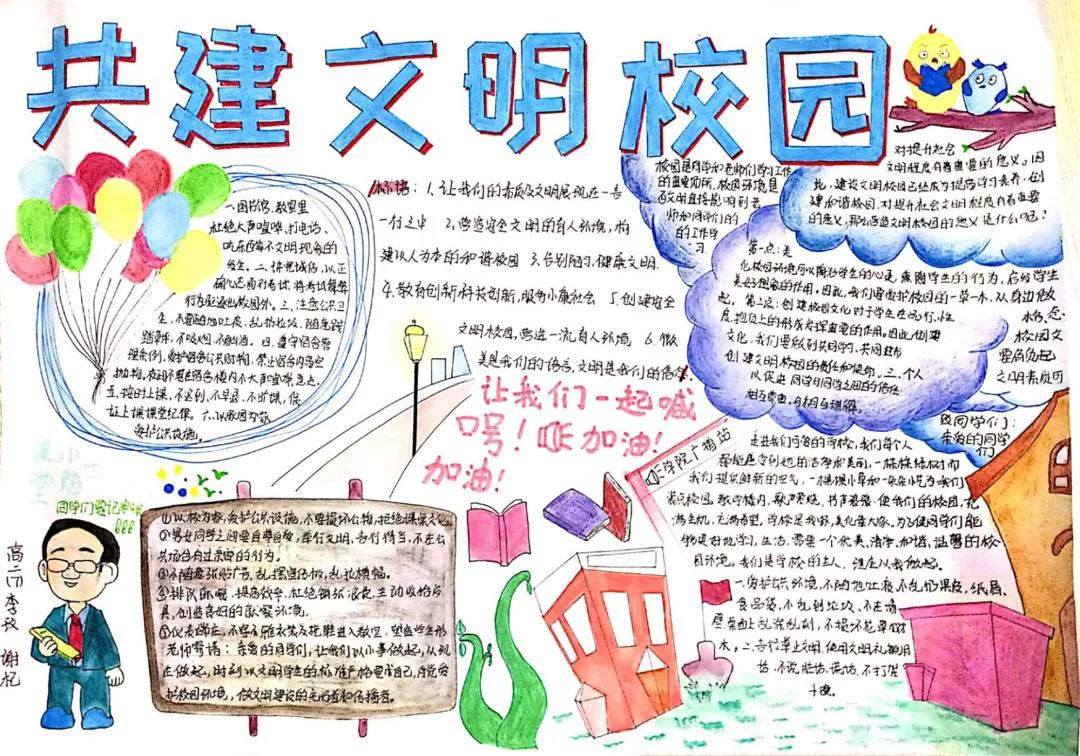 共建文明校园
一.图书馆,教室里
杜绝大声喧哗,打电话、
吃东西等不文明现象的
发生。二.讲究诚信,以正
确心态面对考试,将考试舞弊
行为驱逐出校园外。三.注意公共卫
生,不要随地吐痰,乱扔垃圾,随意践
踏草坪,不吸烟,不酗酒。四.遵守宿舍管
理条例,爱护宿舍公共财物,禁止宿舍内高空
抛物,夜间不要在宿舍楼内不大声喧哗
五.按时上课,不迟到,不早退,不旷课,保
证上课课堂纪律。六.以校园为家
爱护公共设施。
标语:1.让我们的素质及文明展现在一言
一行之中 2.营造安全文明的育人环境,构
建以人为本的和谐校园 3.告别陋习,健康文明.
4.教育创新科技创新,服务小康社会 5.创建安全
文明校园,营造一流育人环境 6.微
笑是我们的语言,文明是我们的信念.
让我们一起喊
口号!加油!
加油!
校园是同学和老师们学习工作
的重要场所,校园环境是
否文明直接影响到老
师和同学们的
的工作学
习
对提升社会
文明程度有着重要的意义。因
此,建设文明校园已经成为提高学习素养,创
建和谐校园,对提升社会文明程度有着重要
的意义,那么营造文明校园的意义是什么呢?
第一点:美
化校园环境可以陶冶学生的心灵,熏陶学生的行为,启发学生
美好想象的作用。因此,我们要爱护校园的一草一木,从身边做
起。第二点:创建校园文化对于学生在
度,抱负上的形成发挥重要的作用。因此,创建
文化,我们要做到共同学习,共同进步
创建文明校园的责任和使命。三.个人
以促进同学与同学之间的信任
相互尊重,与相互理解。
校园文
要肩负起
文明素质可
致同学们:
亲爱的同学
们
学院广播站
走进我们可爱的学校,我们每个人
都能感受到她的洁净和美丽,一棵棵绿树时而
我们提供新鲜的空气,一棵棵小草和一朵朵小花为我们
装点校园。教学楼内,歌声嘹亮,书声琅琅,使我们的校园,充
满生机,充满希望。学校是我家,美化靠大家。为了使同学们能
够更好地学习,生活,需要一个优美、清净、和谐、温馨的校
园环境。我们是学校的主人,理应从我做起。
一.爱护公共环境,不随地吐痰,不乱扔果皮,纸屑、
食品袋,不乱倒垃圾,不在墙
壁,桌面上乱涂乱刻,不损坏花草树
木。二.言行举止文明,使用文明礼貌用
语,不说脏话、谎话,不打架
斗殴。
同学们要记牢哦
①以校为家,爱护公共设施,不要损坏公物,拒绝课桌文化。
②男女同学之间要自尊自爱,举行文明,言行得当,不在公
共场合有过亲密的行为。
③不随意张贴广告,乱摆宣传板,乱拉横幅。
④排队就餐,提高效率,杜绝铺张浪费,主动收拾餐
具,创造良好的就餐环境。
⑤仪表端庄,不穿不雅衣装及拖鞋进入教室,塑造学生形
老师寄语:亲爱的同学们,让我们从小事做起,从现
在做起,时刻以文明学生的标准严格要求自己,自觉爱
护校园环境,做文明建设的先行者和传播者。
高二(7)李玫 谢杞